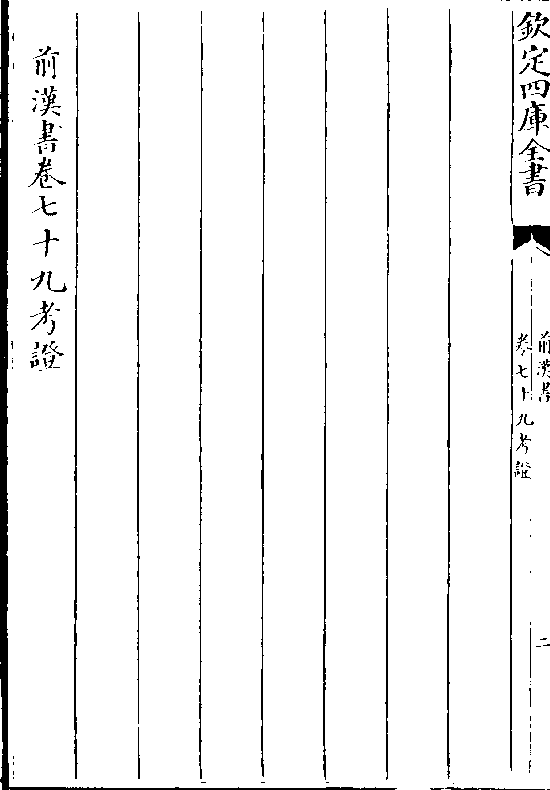 欽定四庫全書
前漢書
卷七十九考證
二
前漢書卷七十九考證